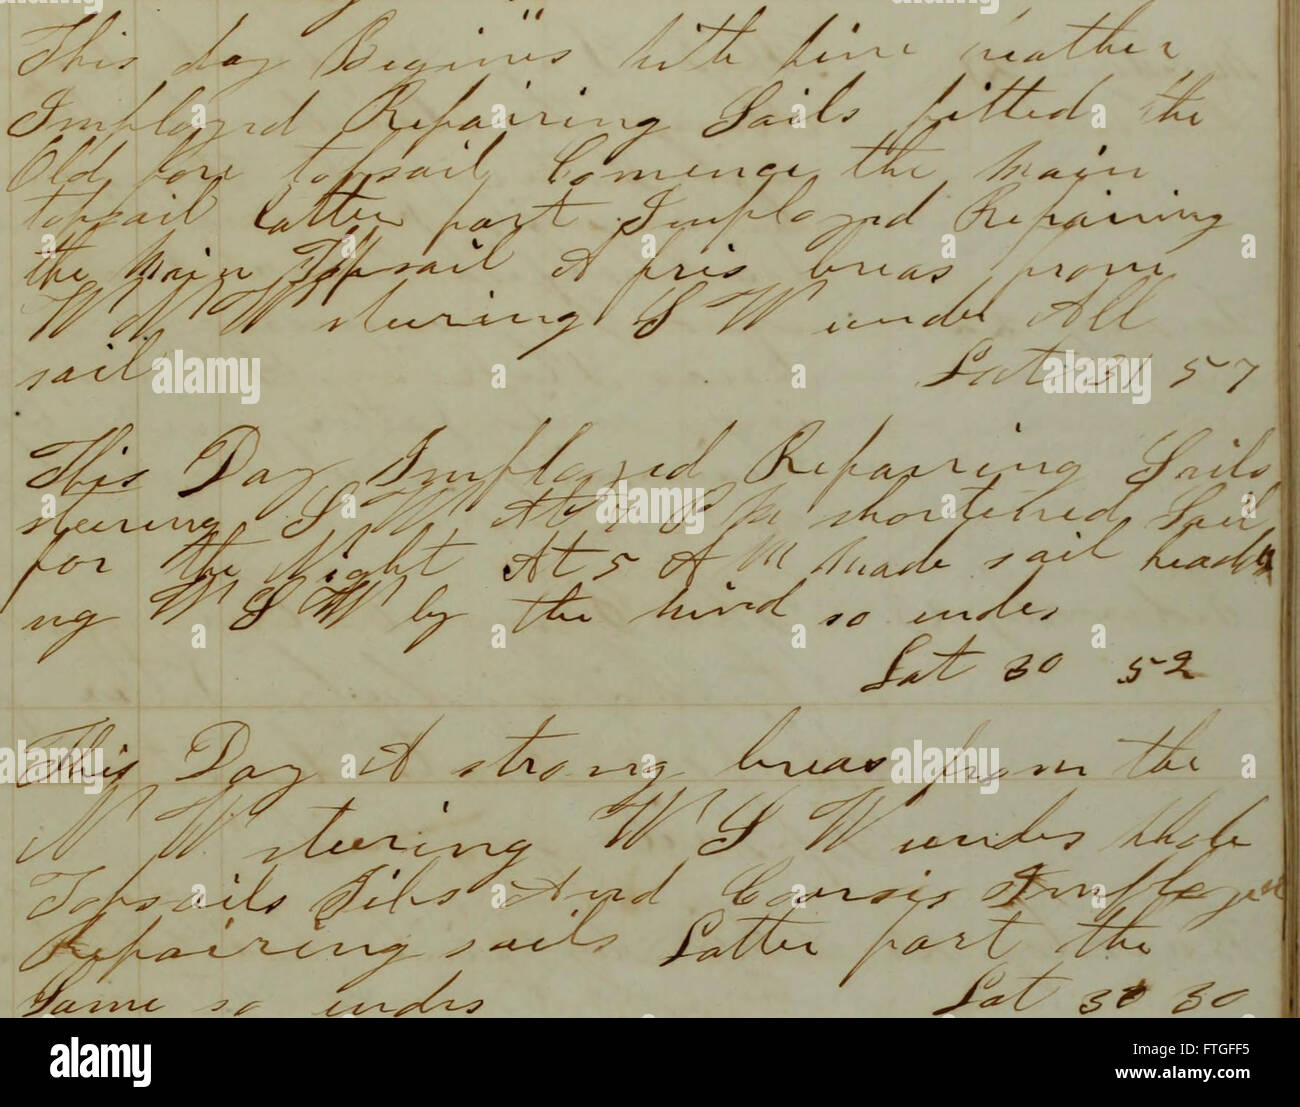 This day Begines with fine weather
Imployed Repairing Sails fitted the
Old fore topsail Comence the main
topsail latter part Imployed Repairing
the Main Topsail A fris breas frome
W N W steering S W under All
sail Lat 31 57
This Day Imployed Repairing Sails
steering S W At 7 P M shortened Sail
for the Night At 5 A M Made sail headi
ng W S W by the wind so endes
Lat 30 52
This Day A strong breas from the
N W steering W S W under whole
Topsails Jibs And Corsis Imployed
Repairing sails Latter part the
Same so endes Lat 30 30
alamy
a
alamy
Image ID: FTGFF5
www.alamy.com